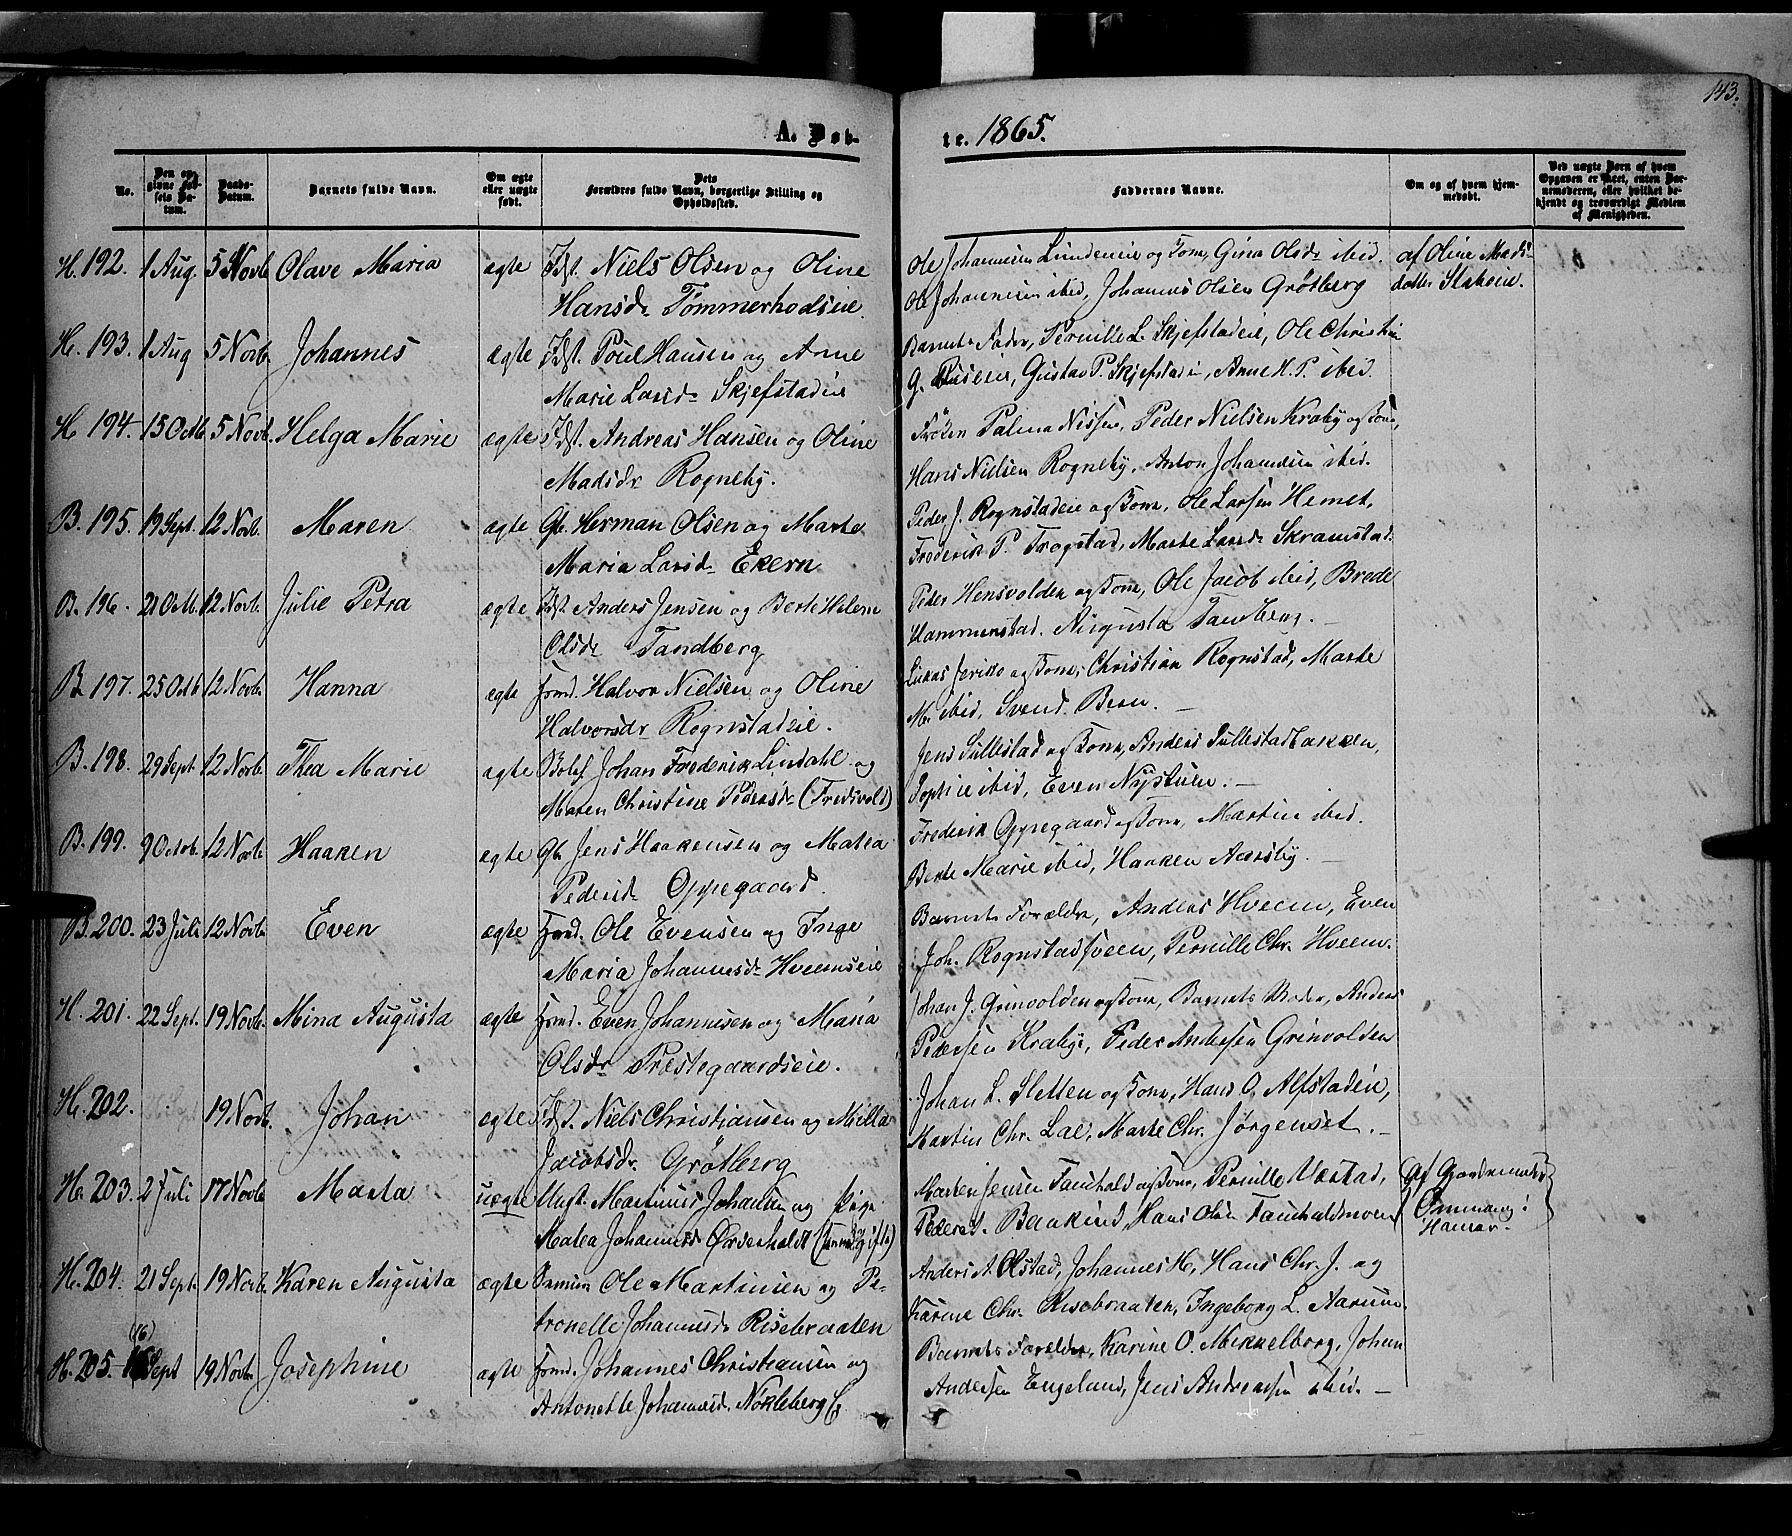 143.
A. Døb-
te. 1865.
No.
Den op-
givne Fød-
sels Da-
tum.
Daabs-
Datum.
Barnets fulde Navn.
Om ægte
eller uægte
født.
Dets
Forældres fulde Navn, borgerlige Stilling og
Opholdssted.
Faddernes Navne.
Om og af hvem hjem-
medøbt.
Ved uægte Børn af hvem
Opgaven er skeet, enten Bar-
nemoderen, eller hvilket be-
kjendt og troværdigt Medlem
af Menigheden.
H. 192. 1 Aug. 5 Novb. Olave Maria ægte Idst. Niels Olsen og Oline
Hansdr Tømmerhodseie.
Ole Johannesen Lundeneie og Kone, Gina Olsdr ibid.
Ole Johannesen ibid, Johannes Olsen Grøtberg
af Oline Mads-
datter Stakeie.
H. 193. 1 Aug 5 Novb. Johannes ægte Idst. Poul Hansen og Anne
Marie Larsdr Skjefstadeie
Barnets Fader, Pernille L. Skjefstadeie, Ole Christian
G. Gustav P. Skjefstadeie, Anne K. P. ibid.
H. 194. 15 Octb. 5 Novb. Helga Marie ægte Idst. Andreas Hansen og Oline
Madsdr Rogneby.
Frøken Palma Nissen, Peder Nielsen Kraby og Kone,
Hans Nielsen Rogneby, Anton Johannesen ibid.
B. 195. 19 Sept. 12 Novb. Maren ægte Gb. Herman Olsen og Marte
Maria Larsdr Ekern
Peder J. Rognstadeie og Kone, Ole Larsen Hemet,
Frederik P. Trogstad, Marte Larsdr Skramstad.
B. 196. 21 Octb. 12 Novb. Julie Petra ægte Idst. Anders Jensen og Berte Helene
Olsdr Tandberg
Peder Hensvolden og Kone, Ole Jacob ibid, Brede
Hammerstad. Augusta Tandberg. –
B. 197. 25 Octb 12 Novb. Hanna ægte Hmd. Halvor Nielsen og Oline
Halvorsdr Rognstadeie.
Lukas Jeriko og Kone, Christian Rognstad, Marte
M. ibid, Svend Bern. –
B. 198. 29 Sept. 12 Novb. Thea Marie ægte Johan Frederik Lindahl og
Maren Christine Pedersdr (Fredsvold)
Jens Sillestad og Kone, Anders Sillestadbakken,
Sophie ibid, Even Nystuen. –
B. 199. 9 Octob. 12 Novb. Haaken ægte Gb. Jens Haakensen og Matea
Pedersdr Oppegaard.
Frederik Oppegaard og Kone, Martin ibid.
Berte Marie ibid, Haaken Aarsby. –
B. 200. 23 Juli 12 Novb. Even ægte Hmd. Ole Evensen og Inge
Maria Johannesdr Hveemseie
Barnets Forældre, Anders Hveem, Even
Joh. Rognstadsveen, Pernille Chr. Hveem.
H. 201. 22 Sept. 19 Novb. Mina Augusta ægte Hmd. Even Johannesen og Maria
Olsdr Præstegaardseie.
Johan J. Grinvolden og Kone, Barnets Moder, Anders
Pedersen Kraby, Peder Andersen Grinvolden
H. 202. 19. Novb. Johan ægte Idst. Niels Christiansen og Milla
Jacobsdr Grøtberg
Johan L. Sletten og Kone, Hans O. Alfstadeie,
Martin Chr. Lae, Marte Chr. Jørgenset. –
H. 203. 2 Juli 17 Novb. Marta uægte Ungk. Martinus Johansen og Pige
Matea Johannesdr (Enmdgifte)
Marten Jensen Fauchald og Kone, Pernille Vestad,
Peder Baakind, Hans Olsen Fauchaldsmoen
(Af Gjordemoder
Ommang i
Hamar.)
H. 204. 21 Sept. 19 Novb. Karen Augusta ægte Ole Martinsen og Pe-
tronelle Johannesdr Risebraaten
Anders A. Olstad, Johannes H, Hans Chr. J. og
Karine Chr. Risebraaten, Ingeborg L. Aasum.
H. 205. (16) Sept 19 Novb. Josephine ægte Hmd. Johannes Christiansen og
Antonette Johannesdr. Nøkleberg
Barnets Forældre, Karine O. Mikkelborg, Johan
Andersen Engeland, Jens Andreassen ibid. –